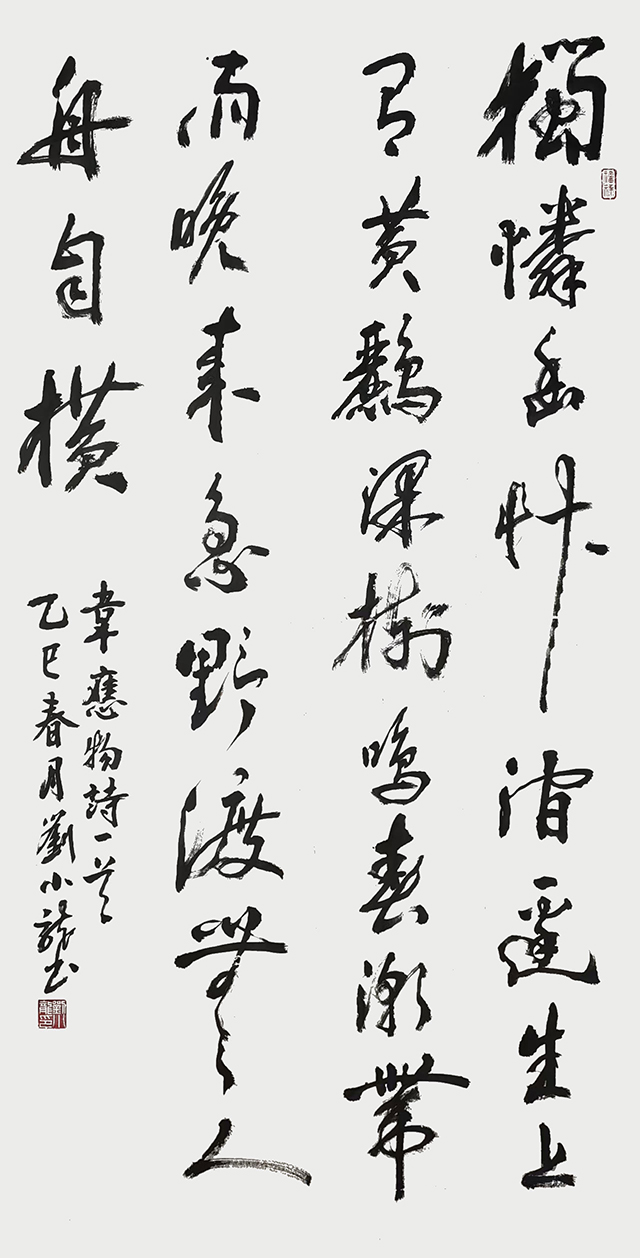 獨憐幽艸澗邊生上
有黃鸝深樹鳴春潮帶
雨晚來急野渡無人
舟自橫
韋應物詩一首
乙巳春月劉小龍書